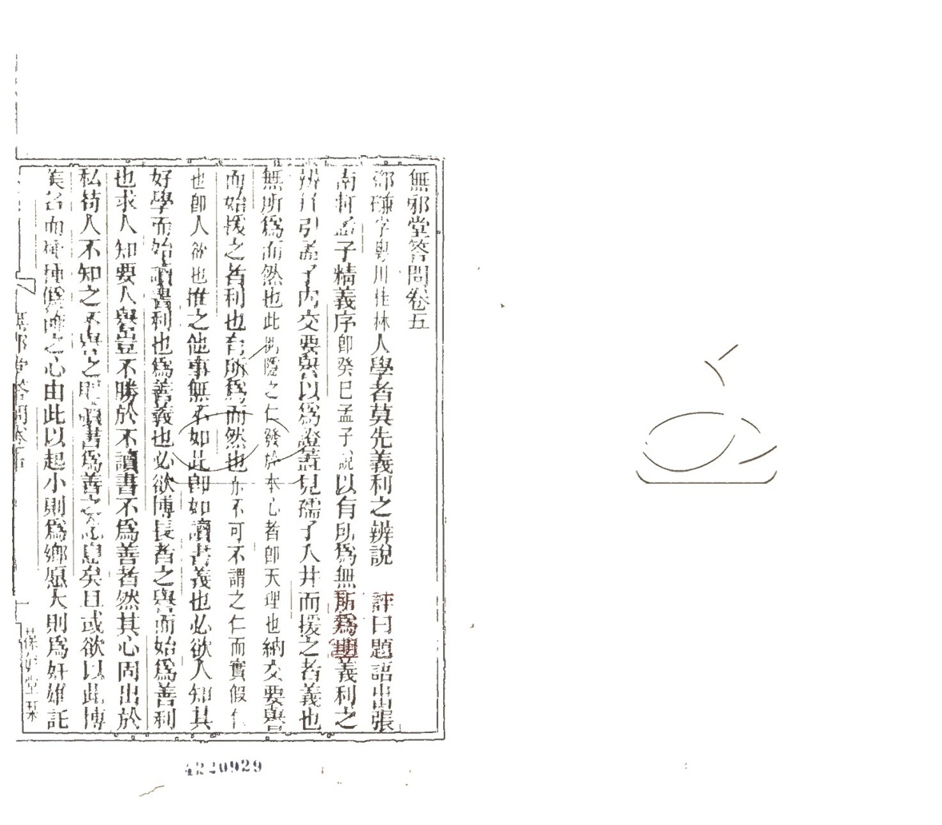 無邪堂答問卷五
鄧 字粵川桂林人學者莫先義利之辨說　評曰題語出張
南軒孟子精義序卽癸巳孟子說以有所爲無所爲明義利之
辨并引孟子內交要譽以爲證蓋見孺子入井而援之者義也
無所爲而然也此惻隱之仁發於本心者卽天理也納交要譽
而始援之者利也有所爲而然也亦不可不謂之仁而實假仁
也卽人欲也推之他事無不如此卽如讀書義也必欲人知其
好學而始讀書利也爲善義也必欲博長者之譽而始爲善利
也求人知要人譽豈不勝於不讀書不爲善者然其心固出於
私苟人不知之不譽之則讀書爲善之 息矣且或欲以此博
美名而種種 之心由此以起小則爲鄉愿大則爲奸雄託
無邪堂答問卷五
葆 堂
4220929